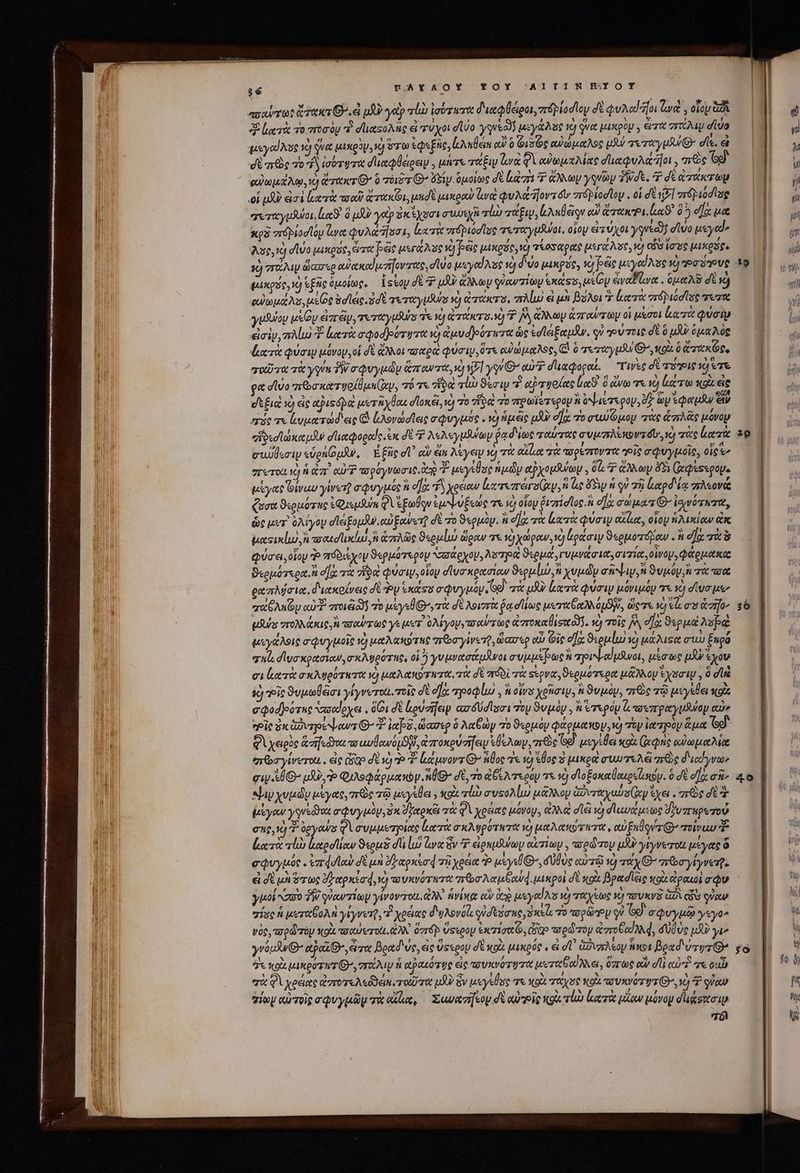 36 ΠΑΥΛΟΥ ΤΟΥ ΑΙΓΙΝΗΤΟΥ
παύτως ἄτακτος. εἰ μὲν γὰρ τὴν ἰσότητα διαφθείροι, περίοδον δὲ φυλάττοι τινὰ, οἷον ἐπὶ
τ κατὰ τὸ ποσὸν τ διαστολῆς εἰ τύχοι δύο γενέσθαι μεγάλας καὶ ἕνα μικρὸν, εἶτα πάλιν δύο
μεγάλους καὶ ἕνα μικρὸν, καὶ οὕτω ἐφεξῆς, κληθείη ἂν ὁ τοιοῦτος ἀνώμαλος μὲν τεταγμένος δέ. εἰ
δὲ πρὸς τὸ τὴν ἰσότητα διαφθείρειν, μήτε τάξιν τινὰ τῆς ἀνωμαλίας διαφυλάττοι, πρὸς τῷ
ἀνωμάλῳ, καὶ ἄτακτος ὁ τοιοῦτος ἐστίν. ὁμοίως δὲ κἀπὶ τ ἄλλων γενῶν τῶνδε. τ δὲ ἀτάκτων
οἱ μὲν εἰσὶ κατὰ πᾶν ἄτακτοι, μηδὲ μικρὰν τινὰ φυλάττοντες περίοδον. οἱ δὲ κατὰ περιόδους
τεταγμένοι, καθ' ὃ μὲν γὰρ οὐκ ἔχουσι συνεχῆ τὴν τάξιν, κληθεῖεν ἂν ἄτακτοι. καθ' ὃ δὲ διὰ μα
κροῦ περίοδόν τινα φυλάττουσι, κατὰ περιόδους τεταγμένοι, οἷον εἰ τύχοι γενέσθαι δύο μεγάλους
καὶ δύο μικροὺς, εἶτα τρεῖς μεγάλους καὶ τρεῖς μικροὺς, καὶ τέσσαρας μεγάλους, καὶ τοὺς ἴσους μικρούς.
καὶ πάλιν ὥσπερ ἀνακαλπάζοντας, δύο μεγάλους καὶ δύο μικροὺς, καὶ τρεῖς μεγάλους καὶ τοσούτους 10
μικροὺς, καὶ ἑξῆς ὁμοίως. Ἰστέον δὲ τ μὲν ἄλλων ἐναντίων ἑκάστου, μέσον εἶναί τινα. ὁμαλοῦ δὲ καὶ
ἀνωμάλου, μέσος οὐδείς. οὐδὲ τεταγμένου καὶ ἀτάκτου. πλὴν εἰ μὴ βούλοι τ κατὰ περιόδους τετα
γμένον μέσον εἰπεῖν, τεταγμένου τε καὶ ἀτάκτου. καὶ τ μὲν ἄλλων ἁπάντων οἱ μέσοι κατὰ φύσιν
εἰσὶν, πλὴν τ κατὰ σφοδρότητα καὶ ἀμυδρότητα ὡς ἐδείξαμεν. ἐν τούτοις δὲ ὁ μὲν ὁμαλὸς
κατὰ φύσιν μόνον, οἱ δὲ ἄλλοι παρὰ φύσιν, ὅτε ἀνώμαλος, καὶ ὁ τεταγμένος, καὶ ὁ ἄτακτος.
ταῦτα τὰ γένη τῶν σφυγμῶν ἅπαντα, καὶ κατὰ γένος αὐτῶν διαφοραί. Τινὲς δὲ τούτοις καὶ ἕτε
ρα δύο προσκατηρίθμησαν, τό τε παρὰ τὴν θέσιν τ ἀρτηρίας καθ' ὃ ἄνω τε καὶ κάτω καὶ εἰς
δεξιὰ καὶ εἰς ἀριστερὰ μετῆχθαι δοκεῖ, καὶ τὸ παρὰ τὸ πρωϊαίτερον ἢ ὀψιαίτερον, ἐξ ὧν ἔφαμεν εἶναι
τούς τε κυματώδεις καὶ κλονώδεις σφυγμούς. καὶ ἡμεῖς μὲν διὰ τὸ σύντομον τὰς ἁπλᾶς μόνον
παρεδώκαμεν διαφοράς. ἐκ δὲ τ λελεγμένων ῥαδίως ταύτας συμπλέκοντες, καὶ τὰς κατὰ 20
σύνθεσιν εὑρήσομεν. Ἑξῆς δ' ἂν εἴη λέγειν καὶ τὰ αἴτια τὰ τρέποντα τοὺς σφυγμοὺς, οἷς ἕ
πεται καὶ ἡ ἀπ' αὐτῶν πρόγνωσις. ἀπὸ τ μεγέθους ἡμῶν ἀρχομένων, ὅτι τ ἄλλων ἐστὶ σαφέστερον.
μέγας τοίνυν γίνεται σφυγμὸς ἢ διὰ τὴν χρείαν κατεπείγουσαν, ἥτις ἐστὶν ἢ ἐν τῇ καρδίᾳ πλεονά
ζουσα θερμότης ἐφιεμένη τῆς ἔξωθεν ἐμψύξεώς τε καὶ οἷον ῥιπίσεως. ἢ διὰ σώματος ἰσχνότητα,
ὡς μετ' ὀλίγον δείξομεν. αὐξάνεται δὲ τὸ θερμὸν, ἢ διὰ τὰ κατὰ φύσιν αἴτια, οἷον ἡλικίαν ἀκ
μαστικὴν, ἢ παιδικὴν, ἢ ἁπλῶς θερμὴν ὥραν τε καὶ χώραν, καὶ κρᾶσιν θερμοτέραν. ἢ διὰ τὰ οὐ
φύσει, οἷον τὸ περιέχον θερμότερον ὑπάρχον, λουτρὰ θερμὰ, γυμνάσια, σιτία, οἶνον, φάρμακα
θερμότερα. ἢ διὰ τὰ παρὰ φύσιν, οἷον δυσκρασίαν θερμὴν, ἢ χυμῶν σῆψιν, ἢ θυμὸν, ἢ τὰ πα
ραπλήσια. διακρίνεις δὲ τὸν ἑκάστου σφυγμὸν, τῷ τὰ μὲν κατὰ φύσιν μόνιμόν τε καὶ δυσμε
τάβλητον αὐτῶν ποιεῖσθαι τὸ μέγεθος, τὰ δὲ λοιπὰ ῥᾳδίως μεταβαλλόμενον, ὥστε καὶ εἴκοσι ἁπτο 30
μένου πολλάκις, ἢ πάντως γε μετ' ὀλίγον, πάντως ἀποκαθίστασθαι. καὶ τοῖς μὲν διὰ θερμὰ λουτρὰ
μεγάλοις σφυγμοῖς καὶ μαλακότης προσγίνεται, ὥσπερ αὖ τοῖς διὰ θερμὴν καὶ μάλιστα σὺν ξηρό
τητι δυσκρασίαν, σκληρότης. οἱ δὲ γυμνασάμενοι συμμέτρως ἢ τριψάμενοι, μέσως μὲν ἔχου
σι κατὰ σκληρότητα καὶ μαλακότητα. τὰ δὲ περὶ τὰ στέρνα, θερμότερα μᾶλλον ἔχουσιν, ὃ δὴ
καὶ τοῖς θυμωθεῖσι γίγνεται. τοῖς δὲ διὰ τροφὴν, ἢ οἴνου χρῆσιν, ἢ θυμὸν, πρὸς τῷ μεγέθει καὶ
σφοδρότης ὑπάρχει. ὅτι δὲ κρύπτειν σπεύδουσι τὸν θυμὸν, ἢ ἕτερόν τι πεπραγμένον αὐ
τοῖς οὐκ ἐπιτρέψαντος τ ἰατροῦ, ὥσπερ ὁ λαβὼν τὸ θερμὸν φάρμακον, καὶ τὸν ἰατρὸν ἅμα τῷ
τῆς χειρὸς ἅψασθαι πυνθανόμενον, ἀποκρύπτειν ἐθέλων, πρὸς τῷ μεγέθει καὶ σαφὴς ἀνωμαλία
προσγίνεται. εἰς ὅπερ δὲ καὶ τὸ τ κάμνοντος ἦθος τε καὶ ἔθος οὐ μικρὰ συντελεῖ πρὸς διάγνω
σιν. ἔθος μὲν, τὸ φιλοφάρμακον. ἦθος δὲ, τὸ ἀβέλτερον τε καὶ δοξοκαθαιρετικόν. ὁ δὲ διὰ σῆ 40
ψιν χυμῶν μέγας, πρὸς τῷ μεγέθει, καὶ τὴν συστολὴν μᾶλλον ἐπιταχύνουσαν ἔχει. πρὸς δὲ τ
μέγαν γενέσθαι σφυγμὸν, οὐκ ἐξαρκεῖ τὰ τῆς χρείας μόνον, ἀλλὰ δεῖ καὶ δυνάμεως ἐξυπηρετού
σης, καὶ τ ὀργάνου τῆς συμμετρίας κατὰ σκληρότητα καὶ μαλακότητα. αὐξηθέντος τοίνυν τ
κατὰ τὴν καρδίαν θερμοῦ δι' ἥν τινα οὖν τ εἰρημένων αἰτίων, πρῶτον μὲν γίγνεται μέγας ὁ
σφυγμός. ἐπειδὰν δὲ μὴ ἐξαρκέσῃ τῇ χρείᾳ τὸ μέγεθος, εὐθὺς αὐτῷ καὶ τάχος προσγίγνεται.
εἰ δὲ μὴ οὕτως ἐξαρκέσῃ, καὶ πυκνότητα προσλαμβάνει. μικροὶ δὲ καὶ βραδεῖς καὶ ἀραιοὶ σφυ
γμοὶ ὑπὸ τῶν ἐναντίων γίνονται. ἀλλ' ἡνίκα ἂν ἀπὸ μεγάλου καὶ ταχέως καὶ πυκνοῦ ἐπὶ τοὺς ἐναν
τίους ἡ μεταβολὴ γίγνεται, τ χρείας δηλονότι ἐνδεούσης, οὐκέτι τὸ πρῶτον ἐν τῷ σφυγμῷ γεγο
νὸς, πρῶτον καὶ παύεται. ἀλλ' ὅπερ ὕστερον ἐκτίσατο, ὅπερ πρῶτον ἀποβάλλει, εὐθὺς μὲν γι
γνόμενος ἀραιὸς, εἶτα βραδὺς, εἰς ὕστερον δὲ καὶ μικρός. εἰ δ' ἐπιπλέον ἥκοι βραδύτητος 50
τε καὶ μικρότητος, πάλιν ἡ ἀραιότης εἰς πυκνότητα μεταβάλλει, ὅπως ἂν δι' αὐτῆς τε οὖν
τὰ τῆς χρείας ἀποτελεσθείη. ταῦτα μὲν οὖν μεγέθους τε καὶ τάχους καὶ πυκνότητος, καὶ τ ἐναν
τίων αὐτοῖς σφυγμῶν τὰ αἴτια. Συναπτέον δὲ αὐτοῖς καὶ τὴν κατὰ μίαν μόνον διάστασιν